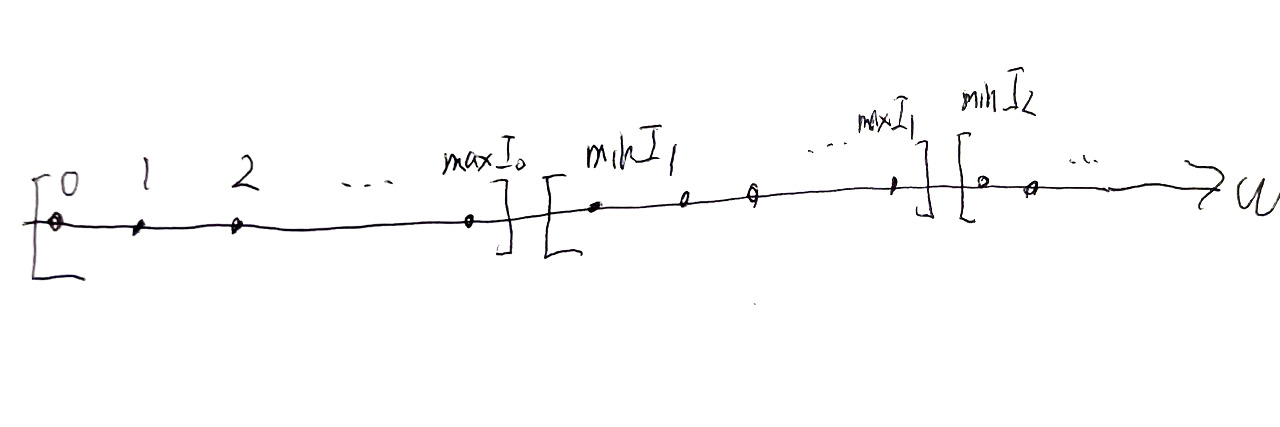 0 1 2 ... max I₀ min I₁ ... max I₁ min I₂ ...
ω